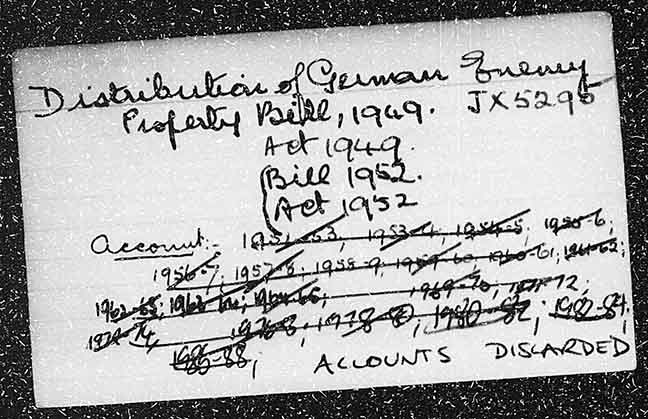 Distribution of German Enemy
Property Bill, 1949. JX5295
Act 1949.
Bill 1952.
Act 1952
Account:- 1951-53; 1953-4; 1954-5; 1955-6;
1956-7; 1957-8; 1958-9; 1959-60; 1960-61; 1961-62;
1962-63; 1964-65, 1969-70, 72,
1976-8; 1978-80; 1980-82; 1982-84;
88; ACCOUNTS DISCARDED